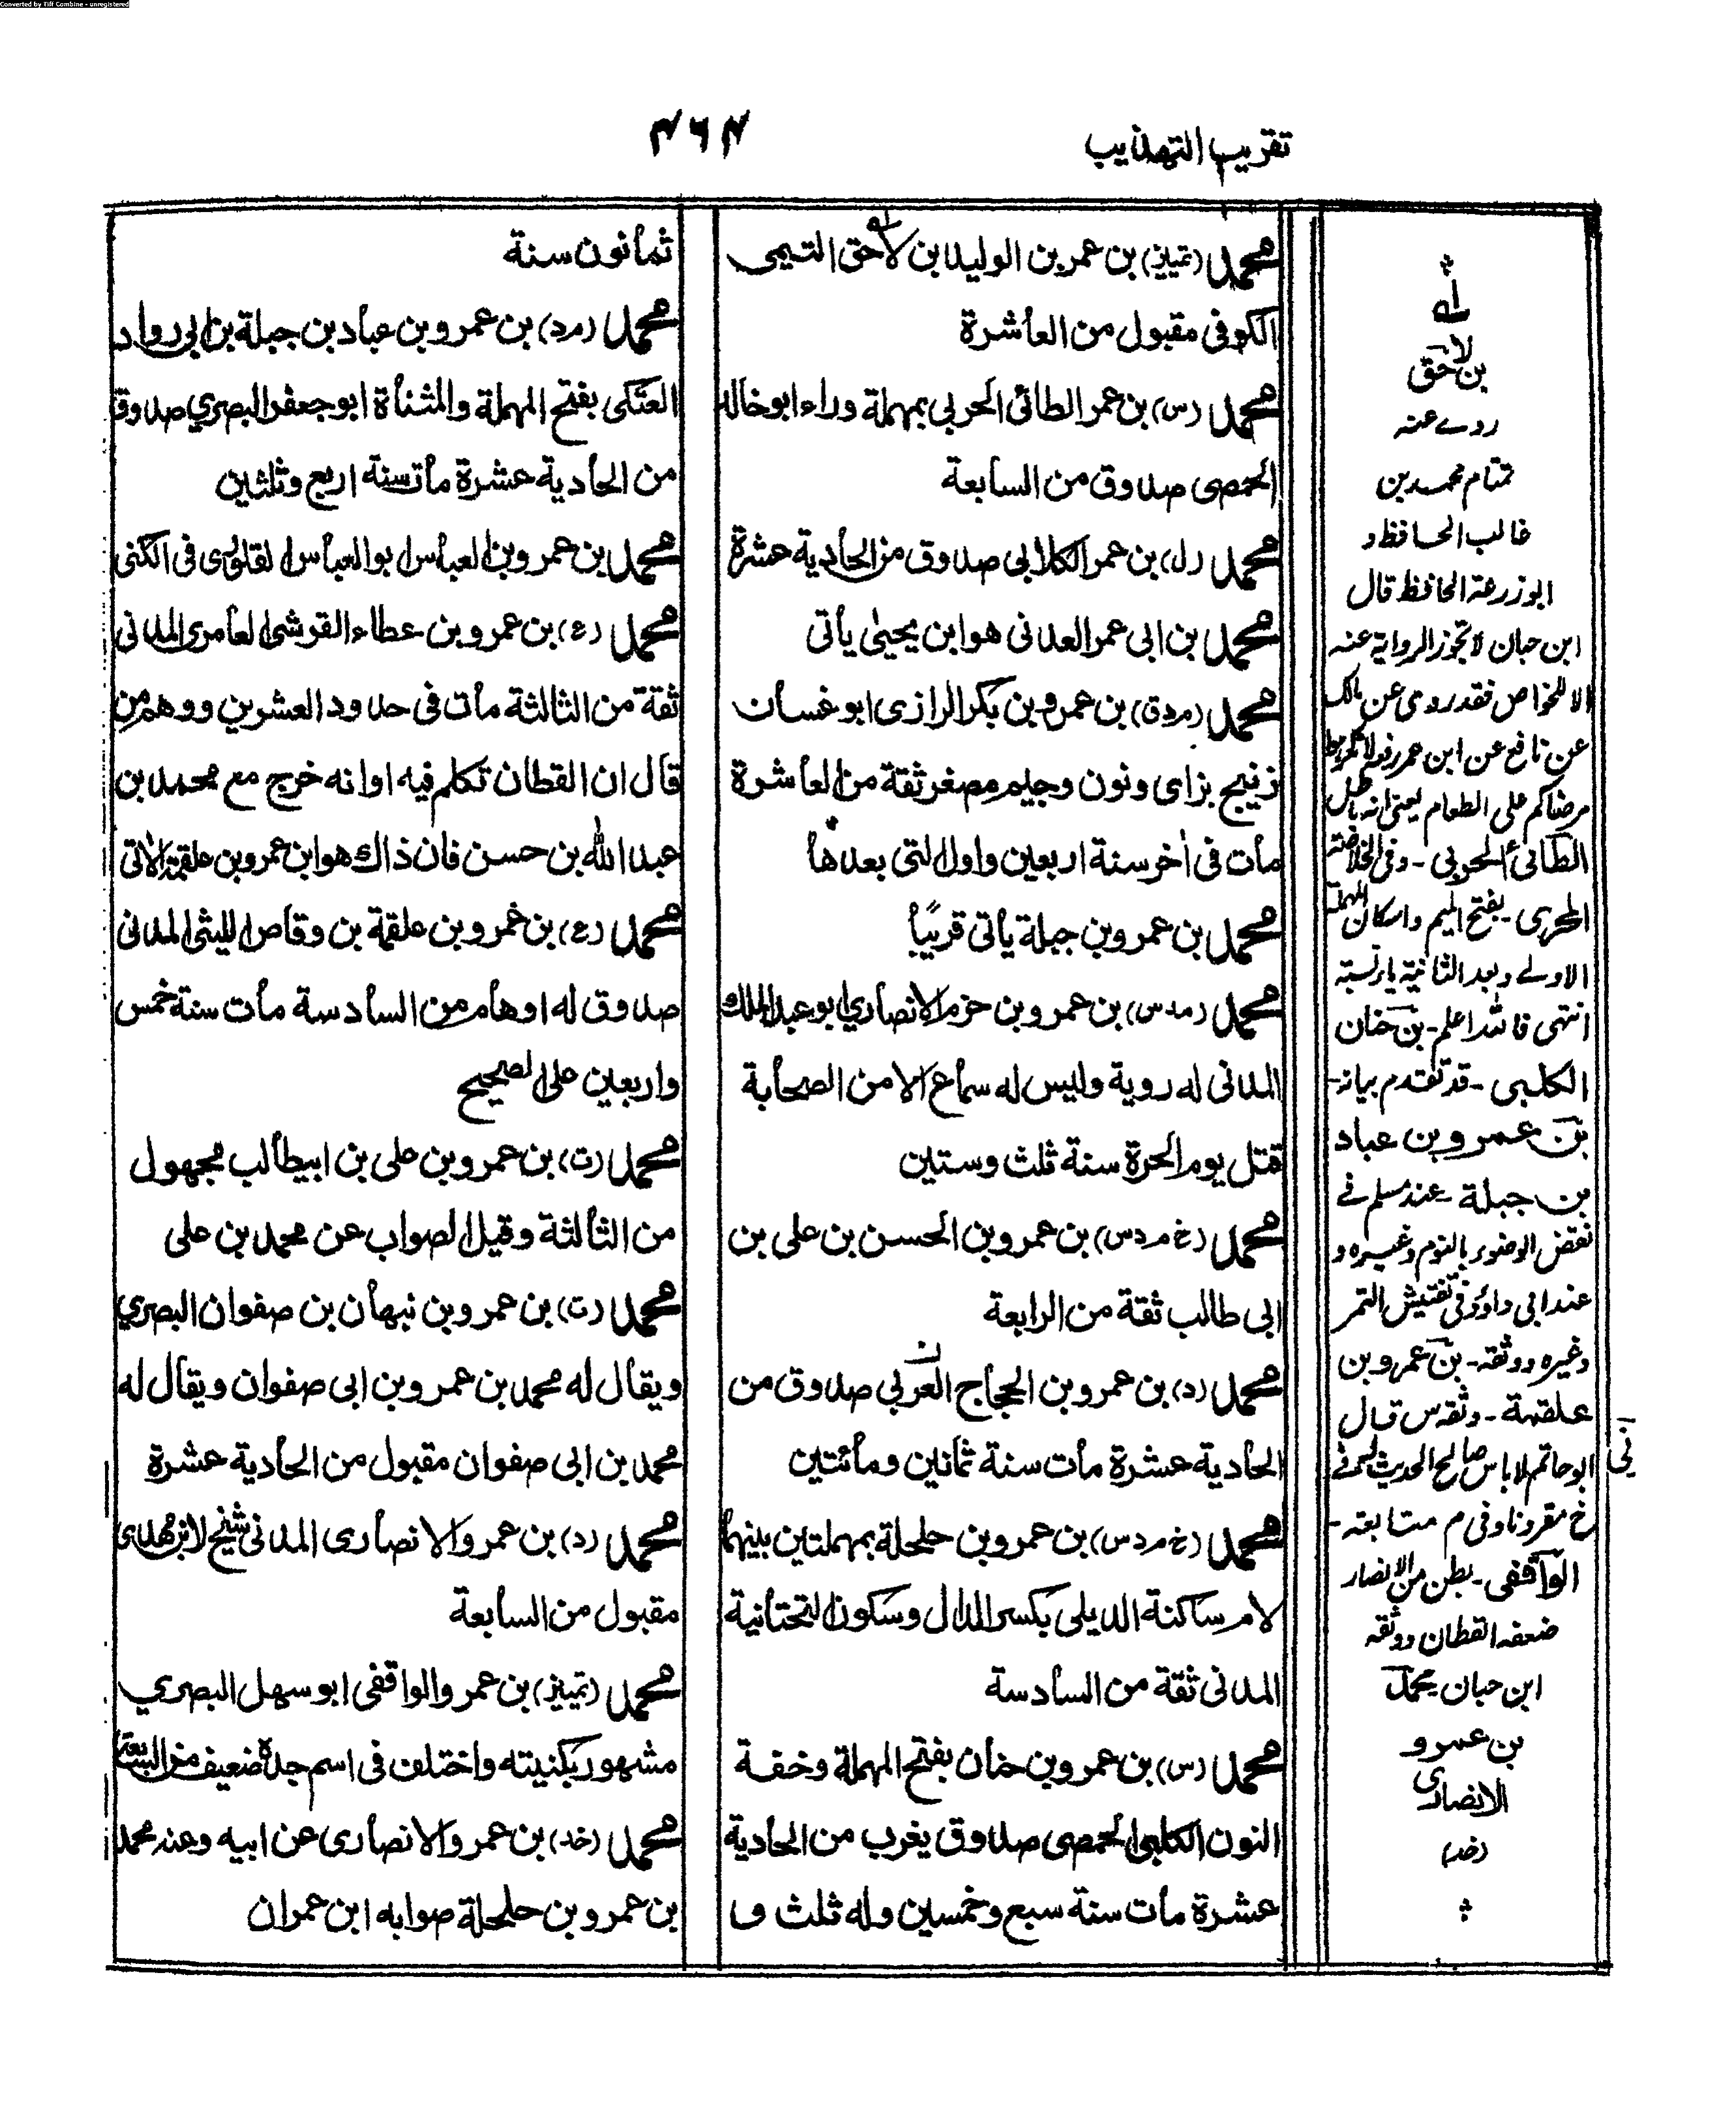 Converted by Tiff Combine - unregistered
تقريب التهذيب
۴۶۴
محمد (تمييز) بن عمر بن الوليد بن لاحق التيمى
الكوفى مقبول من العاشرة
محمد (س) بن عمر الطائى الحربى بمهملة وراء ابو خالد
الحمصى صدوق من السابعة
محمد (ل) بن عمر الكلابى صدوق من الحادية عشرة
محمد بن ابى عمر العدنى هو ابن يحيى يأتى
محمد (م د ق) بن عمرو بن بكر الرازى ابو غسان
زنيج بزاى ونون وجيم مصغر ثقة من العاشرة
مات فى أخر سنة اربعين واول التى بعدها
محمد بن عمرو بن جبلة يأتى قريبًا
محمد (مد س) بن عمرو بن حزم الانصارى ابو عبد الملك
المدنى له روية وليس له سماع الا من الصحابة
قتل يوم الحرة سنة ثلث وستين
محمد (خ م د س) بن عمرو بن الحسن بن على بن
ابى طالب ثقة من الرابعة
محمد (د) بن عمرو بن الحجاج العزبى صدوق من
الحادية عشرة مات سنة ثمانين ومائتين
محمد (خ م د س) بن عمرو بن حلحلة بمهملتين بينهما
لام ساكنة الديلى بكسر الدال وسكون التحتانية
المدنى ثقة من السادسة
محمد (س) بن عمرو بن حنان بفتح المهملة وخفة
النون الكلبى الحمصى صدوق يغرب من الحادية
عشرة مات سنة سبع وخمسين وله ثلث و
ثمانون سنة
محمد (م د) بن عمرو بن عباد بن جبلة بن ابى رواد
العتكى بفتح المهملة والمثناة ابو جعفر البصري صدوق
من الحادية عشرة مات سنة اربع وثلثين
محمد بن عمرو بن العباس ابو العباس القلورى فى الكنى
محمد (ع) بن عمرو بن عطاء القرشى العامرى المدنى
ثقة من الثالثة مات فى حدود العشرين ووهم من
قال ان القطان تكلم فيه او انه خرج مع محمد بن
عبد الله بن حسن فان ذاك هو ابن عمرو بن علقمة الاتى
محمد (ع) بن عمرو بن علقمة بن وقاص الليثى المدنى
صدوق له اوهام من السادسة مات سنة خمس
واربعين على الصحيح
محمد (ت) بن عمرو بن على بن ابيطالب مجهول
من الثالثة وقيل الصواب عن محمد بن على
محمد (ت) بن عمرو بن نبهان بن صفوان البصري
ويقال له محمد بن عمرو بن ابى صفوان ويقال له
محمد بن ابى صفوان مقبول من الحادية عشرة
محمد (د) بن عمرو الانصارى المدنى شيخ لابن مهدى
مقبول من السابعة
محمد (تمييز) بن عمرو الواقفى ابو سهل البصري
مشهور بكنيته واختلف فى اسم جده ضعيف من السابعة
محمد (خد) بن عمرو الانصارى عن ابيه وعنه محمد
بن عمرو بن حلحلة صوابه ابن عمران
له
بن لاحق
روے عنه
تمتام محمد بن
غالب الحافظ و
ابو زرعة الحافظ قال
ابن حبان لا تجوز الرواية عنه
الا للخواص فقد روى عن مالك
عن نافع عن ابن عمر
مرضاكم على الطعام يعنى انه باطل
الطائى الحربى - وفى الخلاصة
المحرى - بفتح الميم واسكان المهملة
الاولے وبعد الثانية ياء نسبة
انتهى فالله اعلم - بن حنان
الكلبى - قد تقدم بيانه -
بن عمرو بن عباد
بن جبلة - عند مسلم فے
نقض الوضوء بالنوم وغيره و
عند ابى داؤد فى تفتيش التمر
وغيره ووثقه - بن عمرو بن
علقمة - وثقه س قال
ابو حاتم لا باس صالح الحديث
خ مقرونا وفى م متابعة -
الواقفى - بطن من الانصار
ضعفه القطان ووثقه
ابن حبان محمد
بن عمرو
الانصارى
(خد)